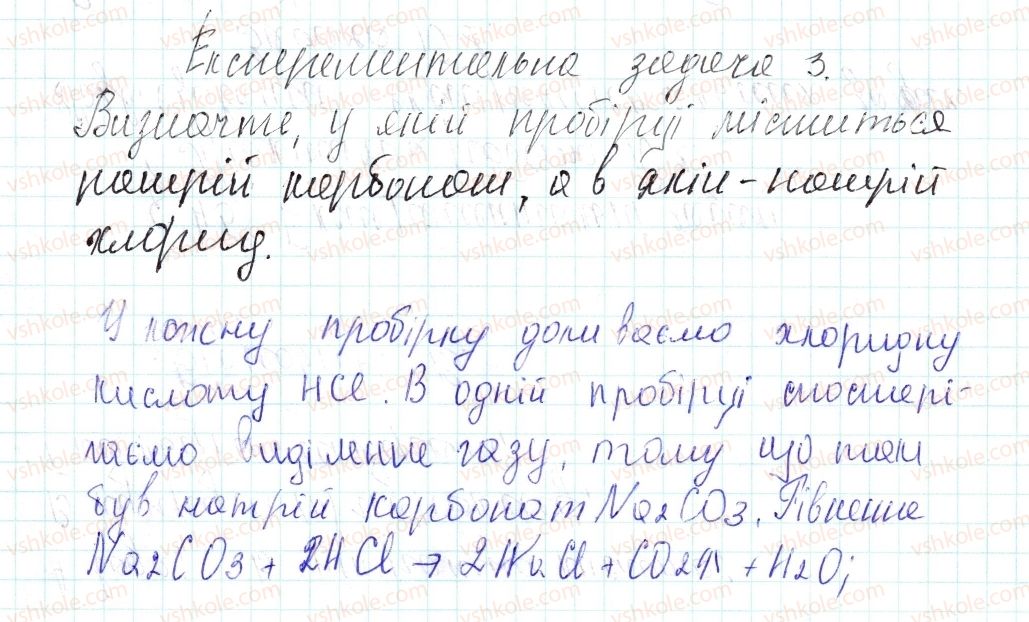 Експерементальна задача 3.
Визначте, у якій пробірці міститься
натрій карбонат, а в якій - натрій
хлорид.
У кожну пробірку доливаємо хлоридну
кислоту HCl. В одній пробірці спостері-
гаємо виділення газу, тому що там
був натрій карбонат Na2CO3. Рівняння
Na2CO3 + 2HCl → 2NaCl + CO2↑ + H2O;